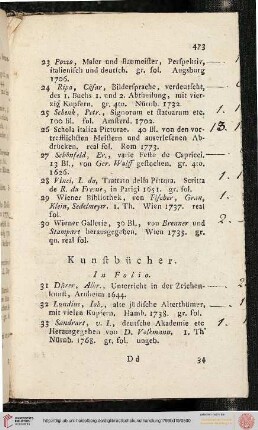 423
23 Pozzo, Maler und Baumeister, Perspektiv,
italienisch und deutsch. gr. fol. Augsburg
1706.
24 Ripa, Cäsar, Bildersprache, verdeutscht,
des 1. Buchs 1. und 2. Abtheilung, mit vier-
zig Kupfern. gr. 4to. Nürnb. 1732.
25 Schenk, Petr., Signorum et statuarum etc.
100 Bl. fol. Amsterd. 1702.
26 Schola italica Picturae. 40 Bl. von den vor-
treflichsten Meistern und auserlesenen Ab-
drücken, real fol. Rom 1773.
27 Schönfeld, Er., varie Teste de Capricci,
13 Bl., von Ger. Wolff gestochen. gr. 4to.
1626.
28 Vinci, L. da, Trattato della Pittura. Scritta
de R. du Fresne, in Parigi 1651. gr. fol.
29 Wiener Bibliothek, von Gran,
Klein, Sedelmeyer. 1. Th. Wien 1737. real
fol.
30 Wiener Gallerie, 30 Bl., von Brenner und
Stampart herausgegeben. Wien 1735. gr.
qu. real fol.
Kunstbücher.
In Folio.
31 Dürer, Albr., Unterricht in der Zeichen-
kunst, Arnheim 1644.
32 Lundius, Joh., alte jüdische Alterthümer,
mit vielen Kupfern. Hamb. 1738. gr. fol.
33 Sandrart, v. I., deutsche Akademie etc
Herausgegeben von D. Volkmann. 1. Th
Nürnb. 1768. gr. fol. ungeb.
D d
34